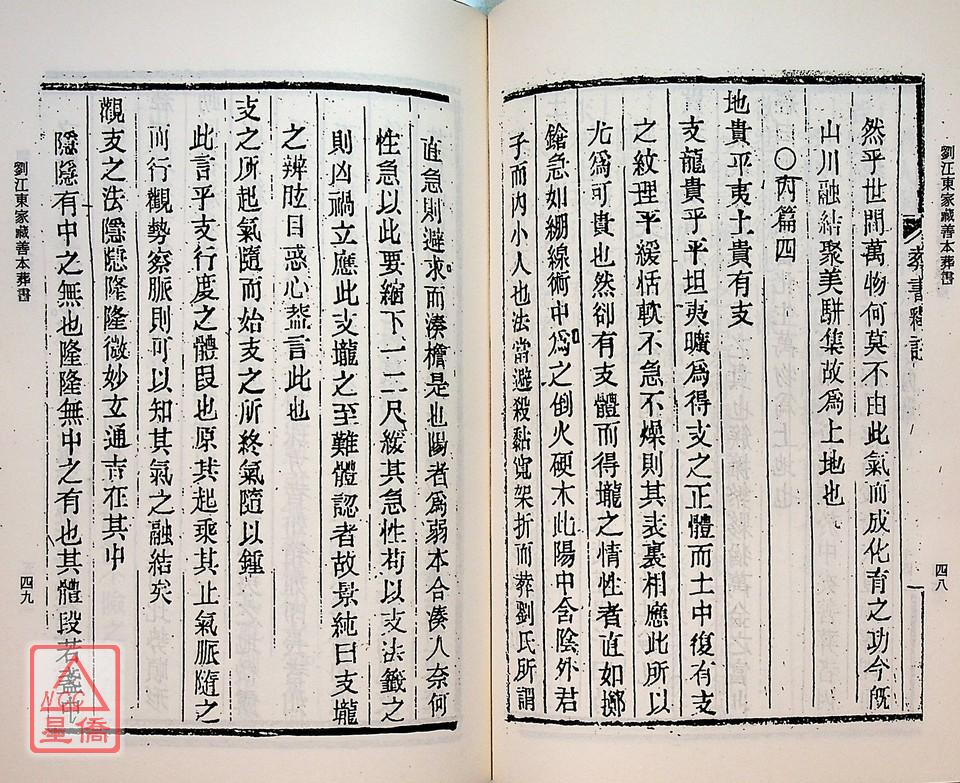 劉江東家藏善本葬書
四八
葬書釋註
然乎世間萬物何莫不由此氣而成化育之功今既
山川融結聚美駢集故為上地也
〇內篇四
地貴平夷土貴有支
支龍貴乎平坦夷曠為得支之正體而土中復有支
之紋理平緩恬軟不急不燥則其表裏相應此所以
尤為可貴也然卻有支體而得壠之情性者直如擲
鎗急如綳線術中為之倒火硬木此陽中含陰外君
子而內小人也法當避殺黏窕架折而葬劉氏所謂
直急則避求而湊檐是也陽者為弱本合湊入奈何
性急以此要縮下一二尺緩其急性苟以支法籤之
則凶禍立應此支壠之至難體認者故景純曰支壠
之辨眩目惑心蓋言此也
支之所起氣隨而始支之所終氣隨以鍾
此言乎支行度之體段也原其起乘其止氣脈隨之
而行觀勢察脈則可以知其氣之融結矣
觀支之法隱隱隆隆微妙玄通吉在其中
隱隱有中之無也隆隆無中之有也其體段若盞中
劉江東家藏善本葬書
四九
NCC
星僑